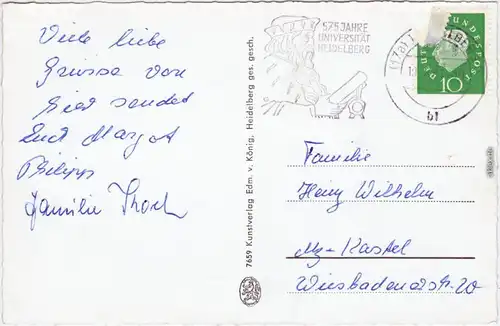 Viele liebe
Grüsse von
hier sendet
Euch Margot
Philipp
Familie
575 JAHRE
UNIVERSITÄT
HEIDELBERG
(17a)
bf
DEUTSCHE BUNDESPOST
10
7659 Kunstverlag Edm. v. König, Heidelberg ges. gesch.
Familie
Wilhelm
Mz-Kastel
Wiesbadenerstr. 20